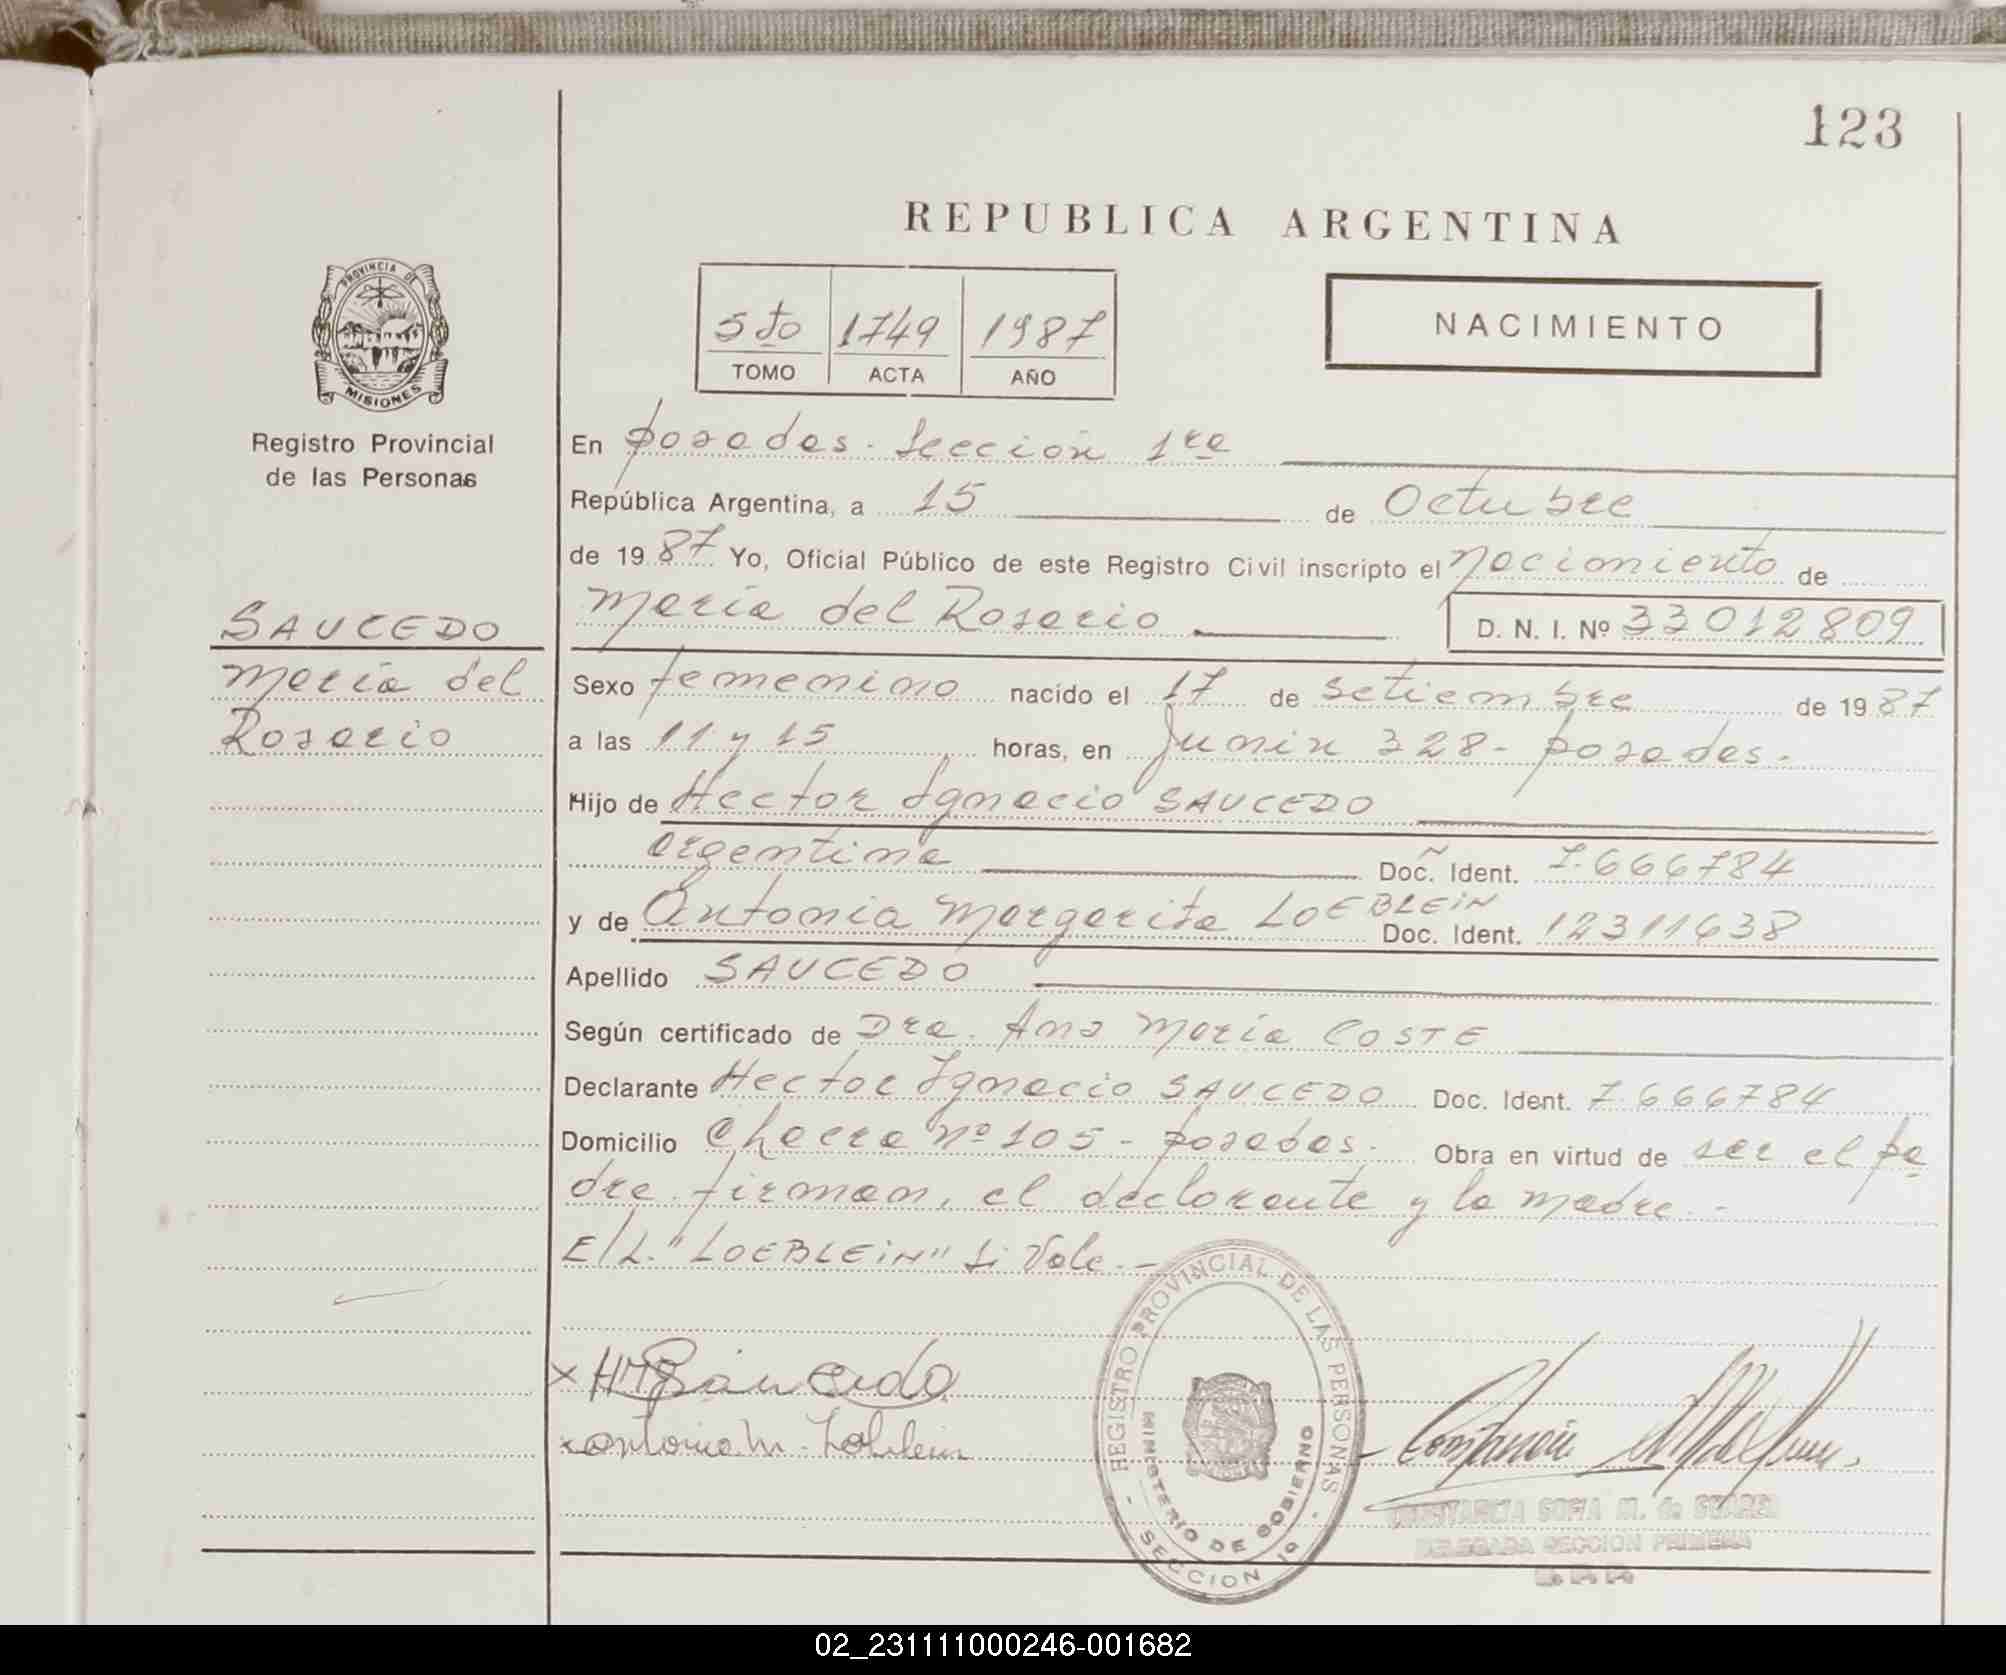 123
REPUBLICA ARGENTINA
PROVINCIA DE
MISIONES
Registro Provincial
de las Personas
5to 1749 1987
TOMO ACTA AÑO
NACIMIENTO
En Posadas - Sección 1ra
República Argentina, a 15 de Octubre
de 1987 Yo, Oficial Público de este Registro Civil inscripto el Nacimiento de
María del Rosario D. N. I. Nº 33012809
SAUCEDO
María del
Rosario
Sexo femenino nacido el 17 de setiembre de 1987
a las 11 y 15 horas, en Junin 328 - Posadas.
Hijo de Hector Ignacio SAUCEDO
argentina Doc. Ident. 7.666784
y de Antonia Margarita LOEBLEIN Doc. Ident. 12311638
Apellido SAUCEDO
Según certificado de Dra. Ana María COSTE
Declarante Hector Ignacio SAUCEDO Doc. Ident. 7.666784
Domicilio Chacra nº 105 - Posadas. Obra en virtud de ser el pa
dre. firman, el declarante y la madre.-
E/L. "LOEBLEIN" Si Vale.-
REGISTRO PROVINCIAL DE LAS PERSONAS
MINISTERIO DE GOBIERNO
- SECCION 1a -
x H Saucedo
x Antonia M. Loblein
CONSTANCIA SOFIA M. de SUAREZ
DELEGADA SECCION PRIMERA
02_231111000246-001682